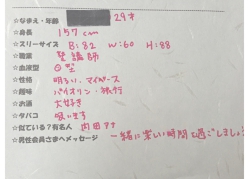 ☆なまえ・年齢 29才
☆身長 157cm
☆スリーサイズ B:82 W:60 H:88
☆職業
☆血液型 O型
☆性格 明るい、マイペース
☆趣味 バイオリン・旅行
☆お酒 大好き
☆タバコ 吸います
☆似ている?有名人 内田
☆男性会員さまへメッセージ 一緒に楽しい時間を過ごしましょう